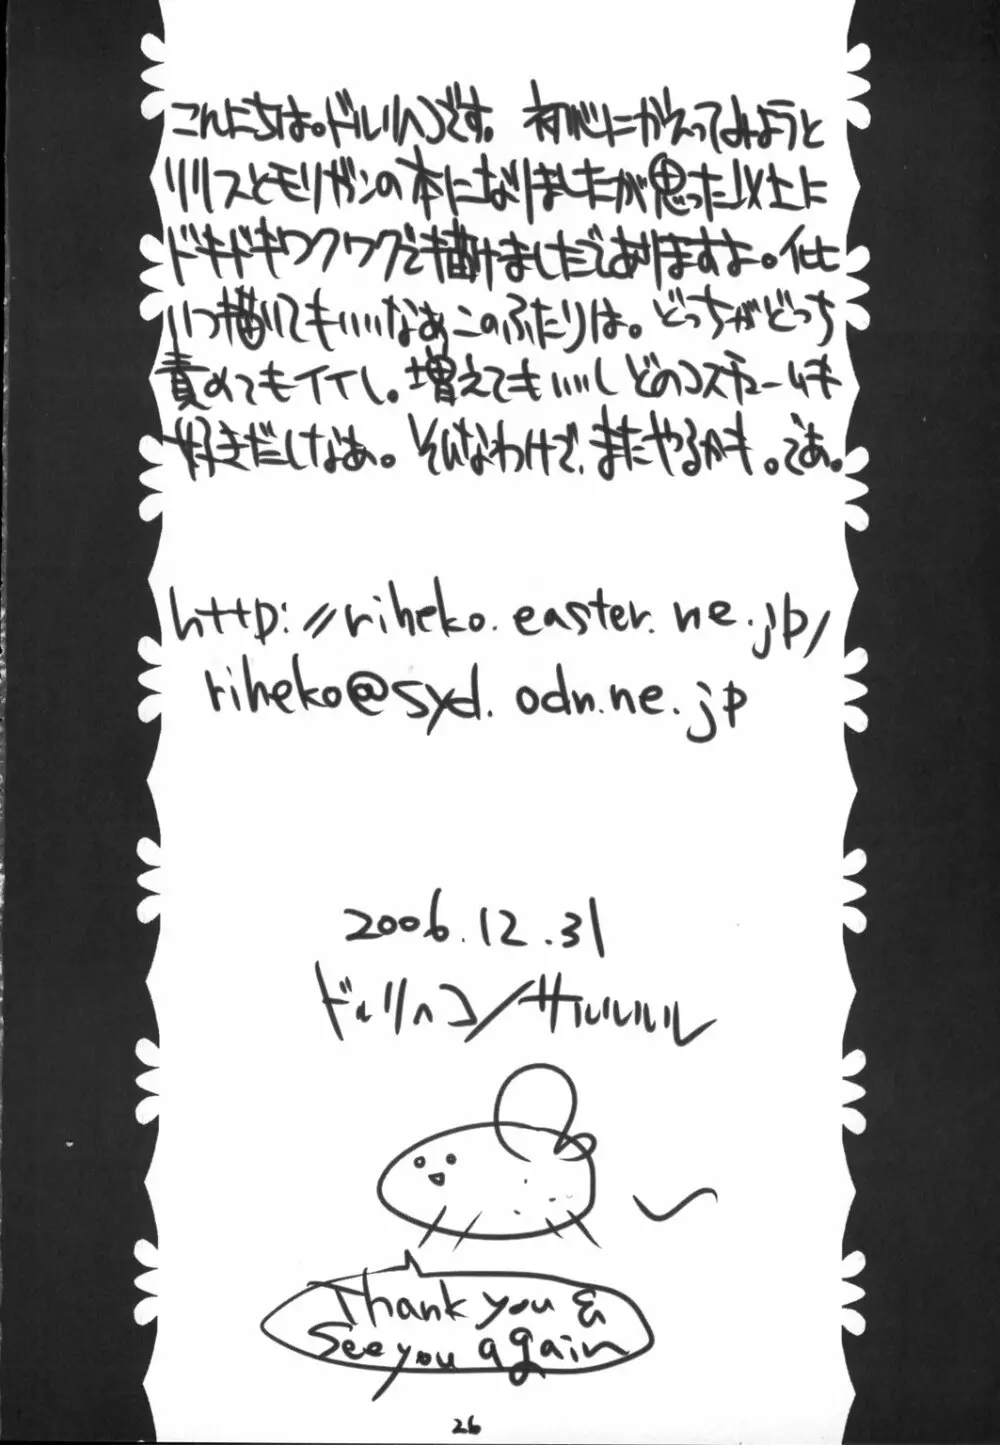 こんにちは。ドルリヘコです。初心にかえってみようと
リリスとモリガンの本になりましたが思った以上に
ドキドキワクワクで描けましたでありますよ。
いつ描いてもいいなぁこのふたりは。どっちがどっち
責めてもイイし。増えてもいいしどのコスチュームも
好きだしなぁ。そんなわけで、またやるかも。であ。
http://riheko.easter.ne.jp/
riheko@syd.odn.ne.jp
2006.12.31
ドルリヘコ/サルルルル
Thank you &
See you again
26